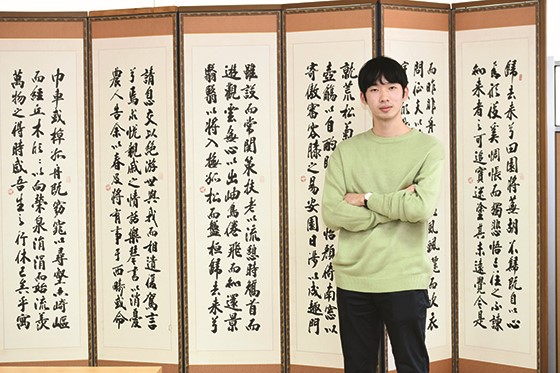 歸去來兮田園將蕪胡不歸旣自以心
爲形役奚惆悵而獨悲悟已往之不諫
知來者之可追實迷塗其未遠覺今是
而昨非舟
風飄而吹衣
問征夫以
就荒松菊
壺觴以自酌眄庭柯以怡顔倚南窓以
寄傲審容膝之易安園日涉以成趣門
雖設而常關策扶老以流憩時矯首而
遐觀雲無心以出岫鳥倦飛而知還景
翳翳以將入撫孤松而盤桓歸去來兮
請息交以絶游世與我而相遺復駕言
兮焉求悅親戚之情話樂琴書以消憂
農人告余以春及將有事于西疇或命
巾車或棹孤舟旣窈窕以尋壑亦崎嶇
而經丘木欣〻以向榮泉涓涓而始流羨
萬物之得時感吾生之行休已矣乎寓